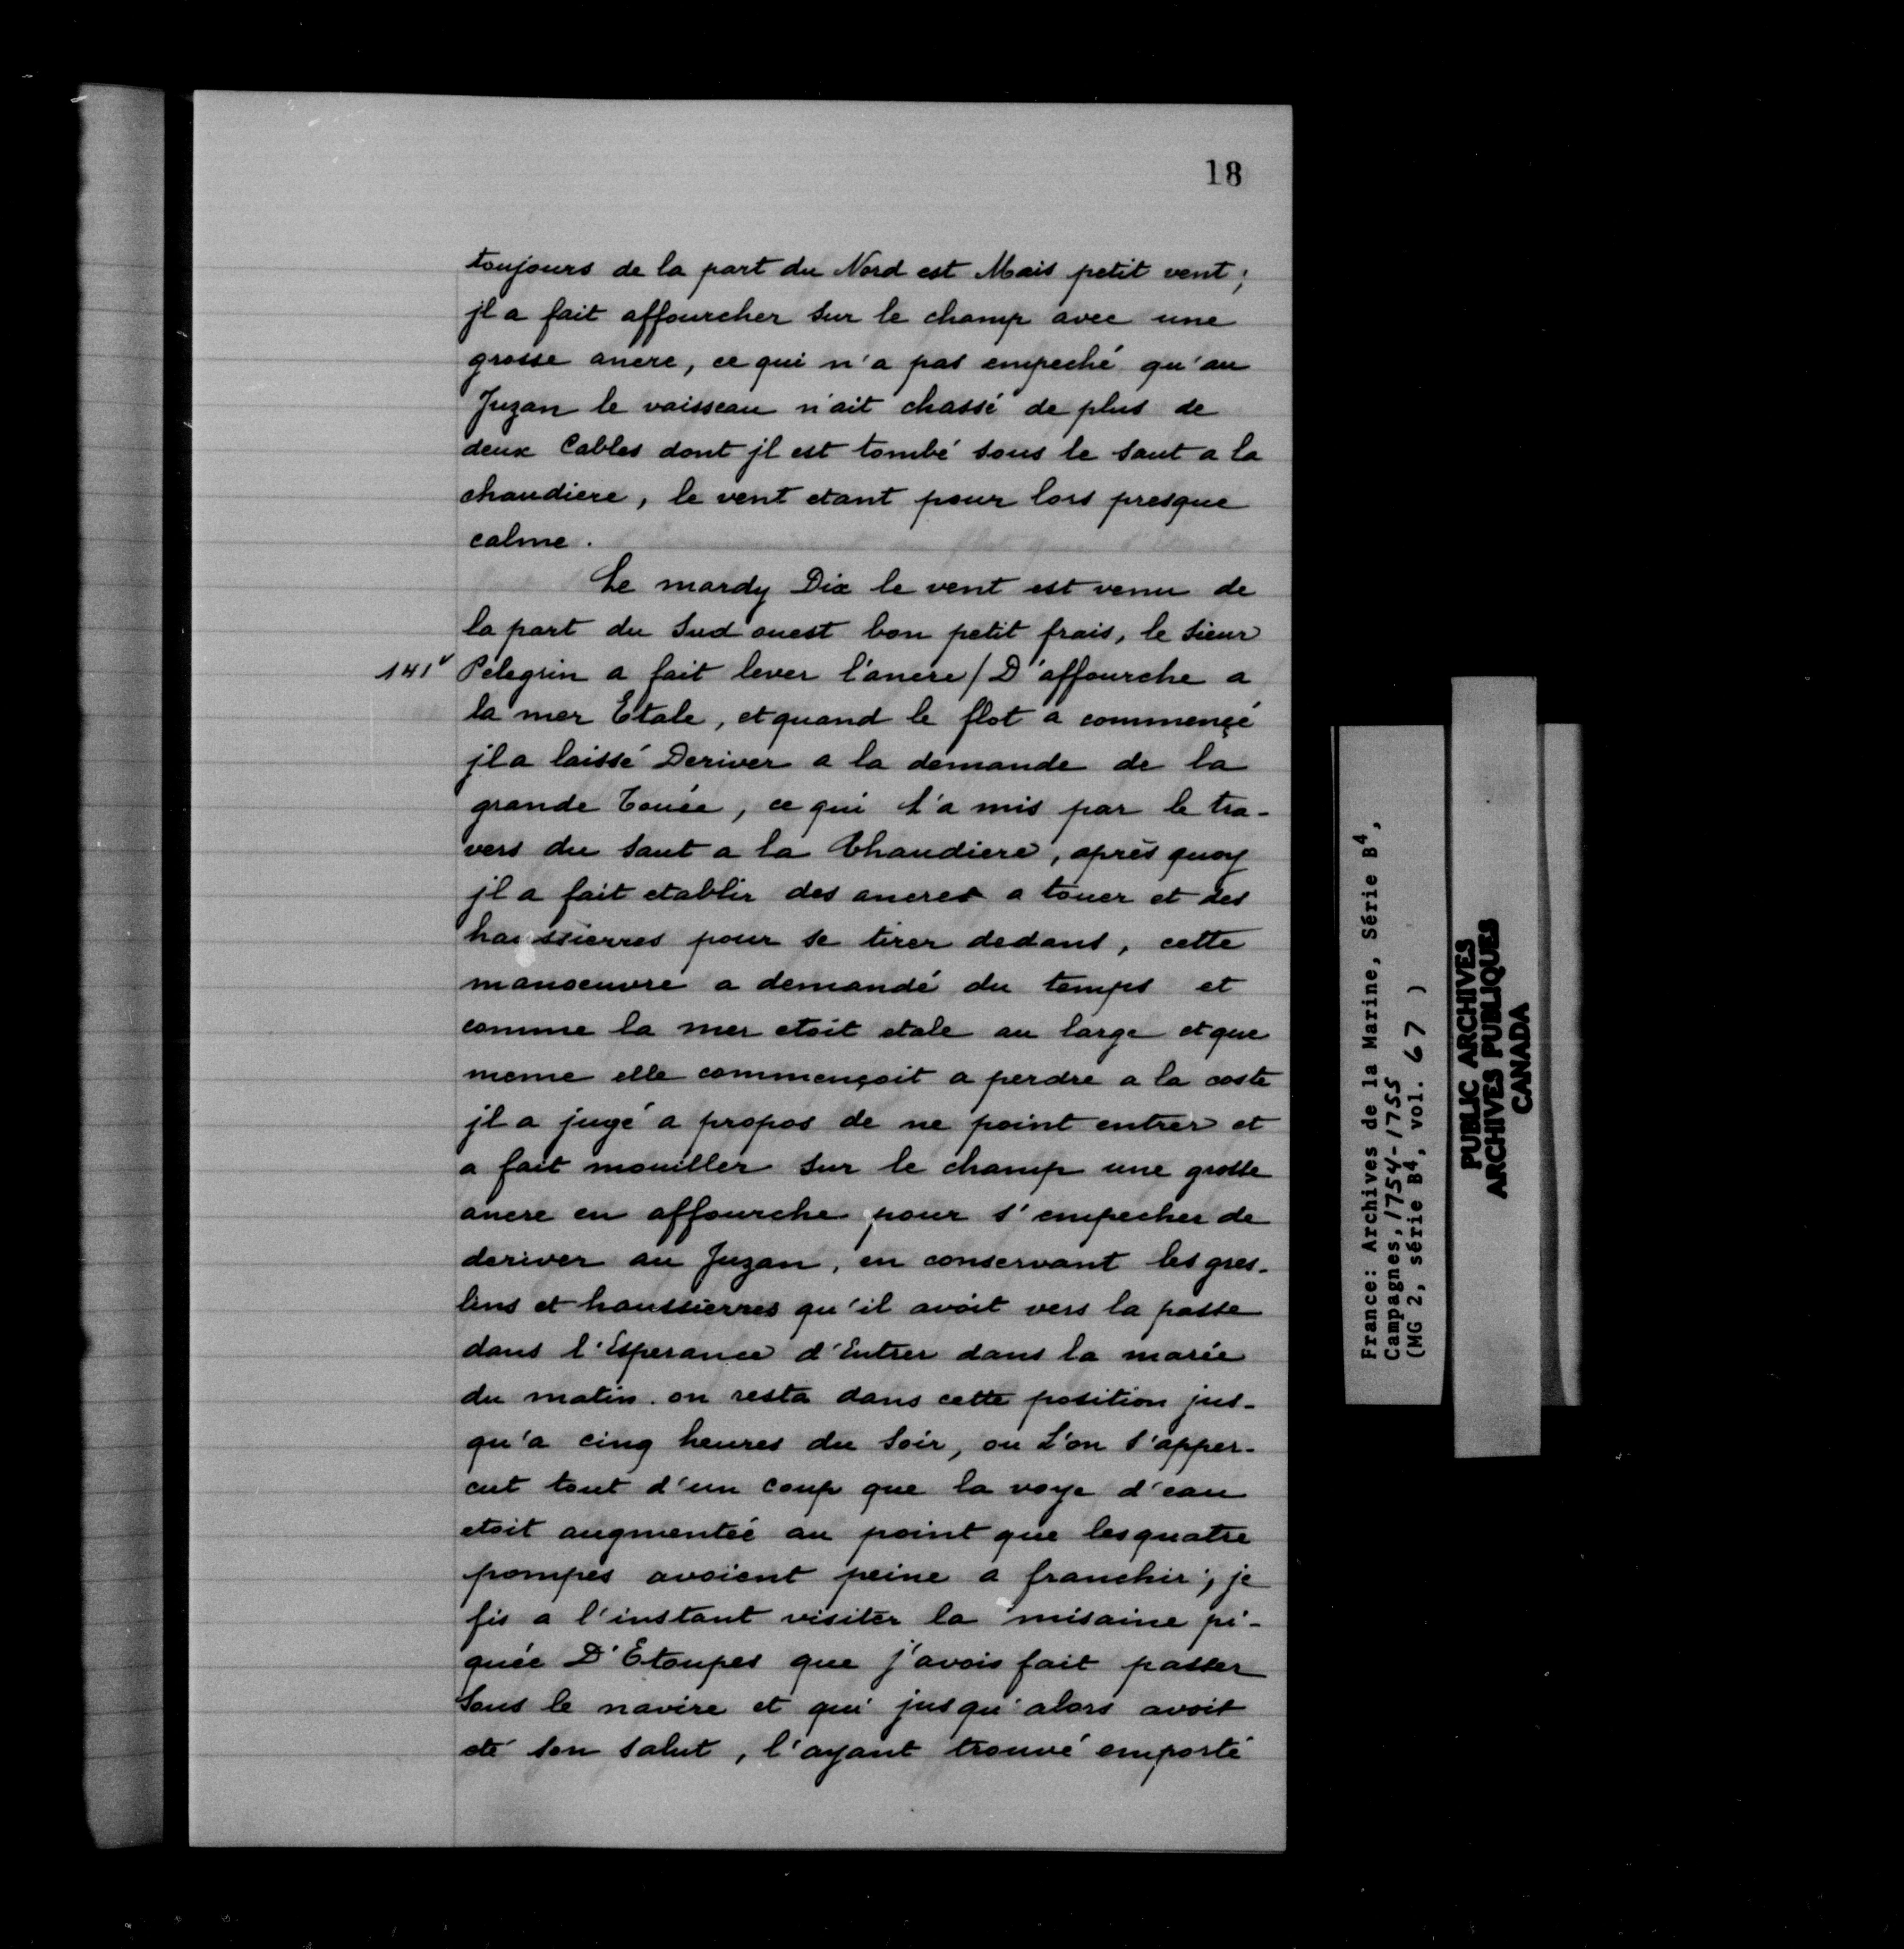 18
toujours de la part du Nord est Mais petit vent;
jl a fait affourcher sur le champ avec une
grosse ancre, ce qui n'a pas empeché qu'au
Juzan le vaisseau n'ait chassé de plus de
deux Cables dont jl est tombé sous le saut a la
chaudiere, le vent etant pour lors presque
calme.
Le mardy Dix le vent est venu de
la part du Sud ouest bon petit frais, le Sieur
141v Pelegrin a fait lever l'ancre / D'affourche a
la mer Etale, et quand le flot a commençé
jl a laissé Deriver a la demande de la
grande Touée, ce qui l'a mis par le tra-
vers du saut a la Chaudiere, après quoy
jl a fait etablir des ancres a touer et des
haussierres pour se tirer dedans, cette
manoeuvre a demandé du temps et
comme la mer etoit etale au large et que
meme elle commençoit a perdre a la coste
jl a jugé a propos de ne point entrer et
a fait mouiller sur le champ une grosse
ancre en affourche pour s'empecher de
deriver au Juzan, en conservant les gres-
lins et haussierres qu'il avoit vers la passe
dans l'Esperance d'Entrer dans la marée
du matin. on resta dans cette position jus-
qu'a cinq heures du Soir, ou L'on s'apper-
cut tout d'un coup que la voye d'eau
etoit augmentée au point que les quatre
pompes avoient peine a franchir; je
fis a l'instant visiter la misaine pi-
quée D'Etoupes que j'avois fait passer
sous le navire et qui jusqu'alors avoit
eté son salut, l'ayant trouvé emporté
France: Archives de la Marine, Série B4,
Campagnes, 1754-1755
(MG 2, série B4, vol. 67 )
PUBLIC ARCHIVES
ARCHIVES PUBLIQUES
CANADA